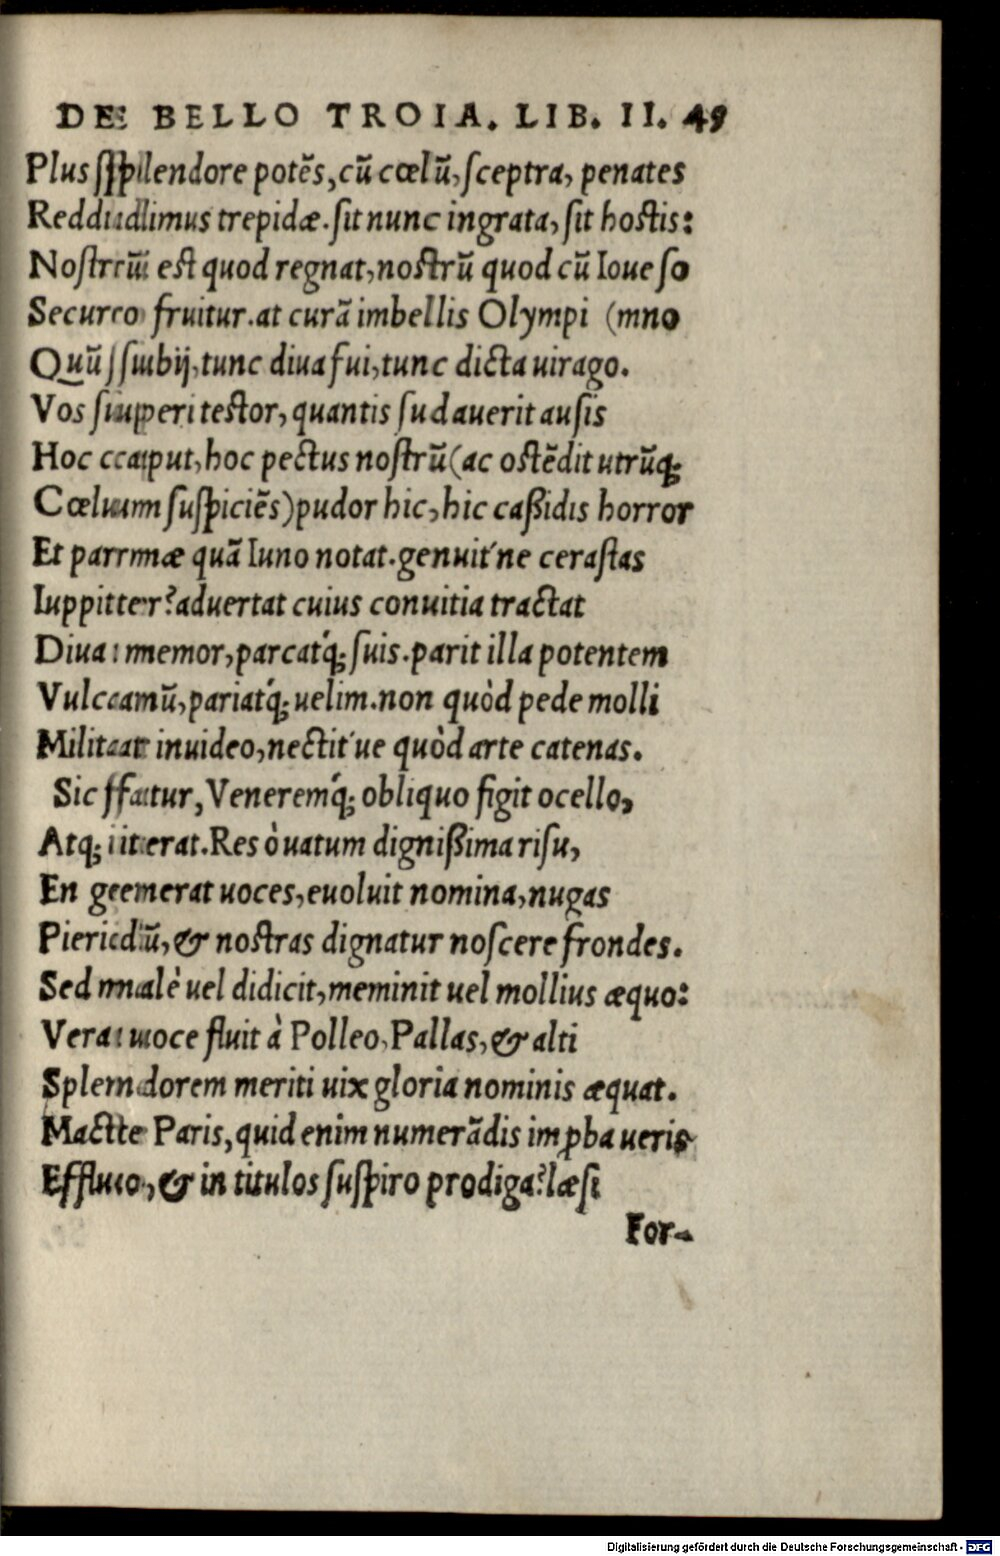 DE BELLO TROIA. LIB. II. 49
Plus splendore potẽs, cũ cœlũ, sceptra, penates
Reddidimus trepidæ. sit nunc ingrata, sit hostis:
Nostrũ est quod regnat, nostrũ quod cũ Ioue so
Securo fruitur. at curã imbellis Olympi (mno
Quũ subij, tunc diua fui, tunc dicta uirago.
Vos superi testor, quantis sudauerit ausis
Hoc caput, hoc pectus nostrũ (ac ostẽdit utrũq;
Cœlum suspiciẽs) pudor hic, hic caßidis horror
Et parmæ quã Iuno notat. genuit'ne cerastas
Iuppiter? aduertat cuius conuitia tractat
Diua: memor, parcatq́; suis. parit illa potentem
Vulcanũ, pariatq́; uelim. non quòd pede molli
Militat inuideo, nectit'ue quòd arte catenas.
Sic fatur, Veneremq́; obliquo figit ocello,
Atq; iterat. Res ò uatum dignißima risu,
En gemerat uoces, euoluit nomina, nugas
Pieridũ, & nostras dignatur noscere frondes.
Sed malè uel didicit, meminit uel mollius æquo:
Vera uoce fluit à Polleo, Pallas, & alti
Splendorem meriti uix gloria nominis æquat.
Macte Paris, quid enim numerãdis imꝓba ueris
Effluo, & in titulos suspiro prodiga? læsi
For-
Digitalisierung gefördert durch die Deutsche Forschungsgemeinschaft - DFG